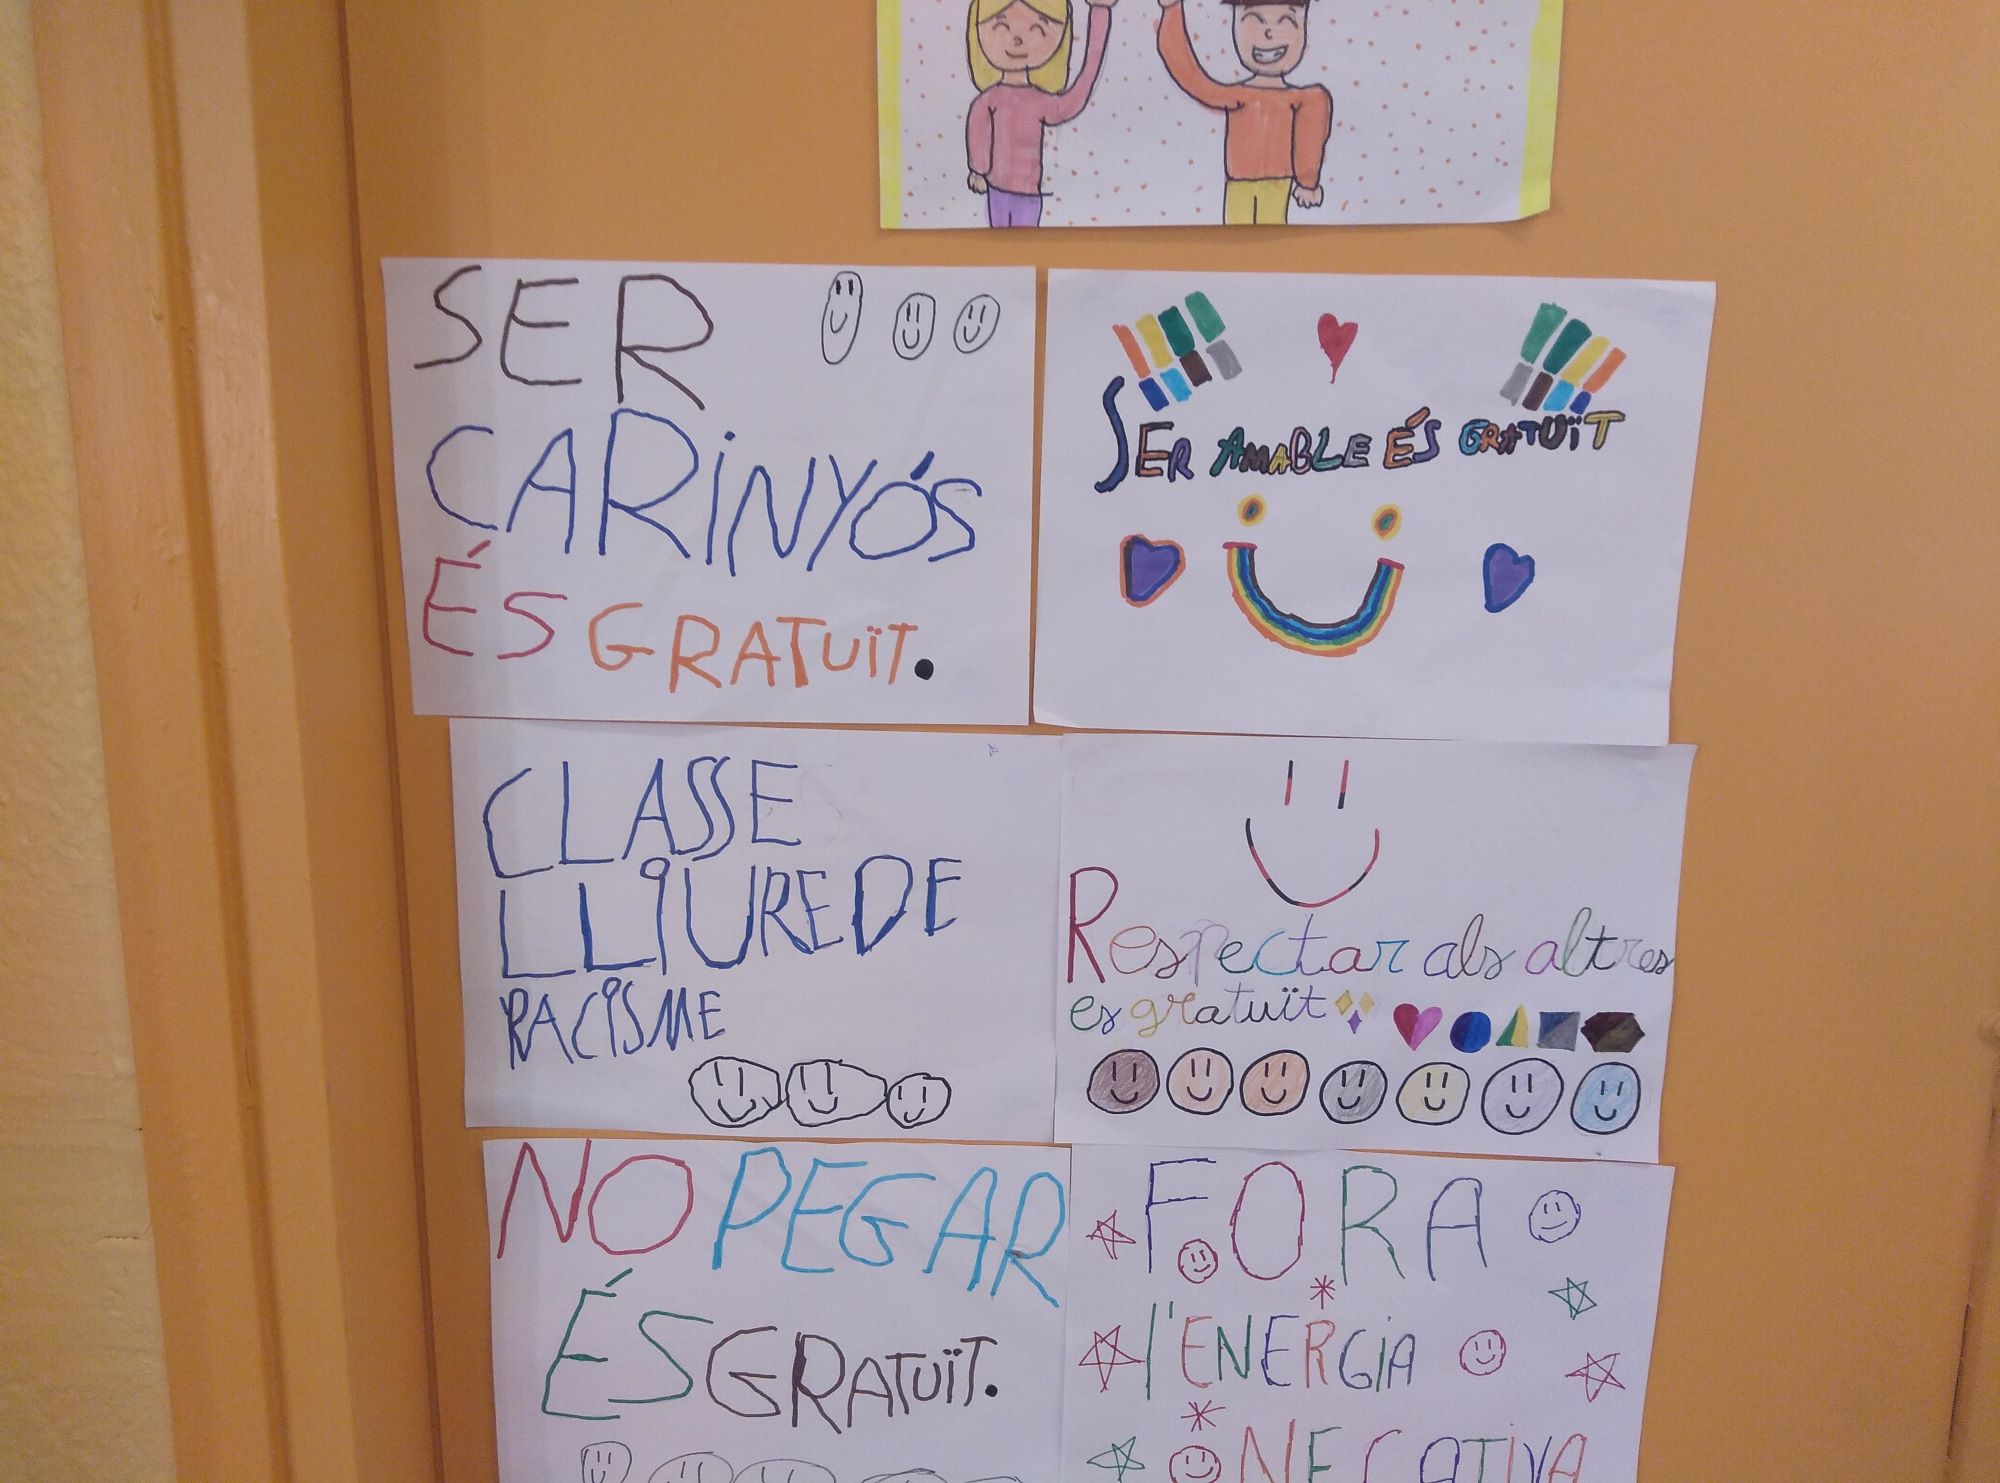 SER
CARINYÓS
ÉS GRATUÏT.
SER AMABLE ÉS GRATUÏT
CLASSE
LLIURE DE
RACISME
Respectar als altres
es gratuït
NO PEGAR
ÉS GRATUÏT.
FORA
l'ENERGIA
NEGATIVA